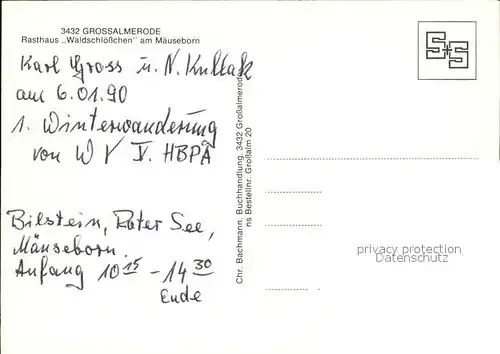 3432 GROSSALMERODE
Rasthaus „Waldschlößchen" am Mäuseborn
Karl Gross u. N. Kullak
am 6.01.90
1. Winterwanderung
von W V V. HBPÄ
Bilstein, Roter See,
Mäuseborn.
Anfang 10 15 - 14 30
Ende
Chr. Bachmann, Buchhandlung, 3432 Großalmerode
ns Bestellnr. Großalm 20
S+S
privacy protection
Ansichtskartenversand